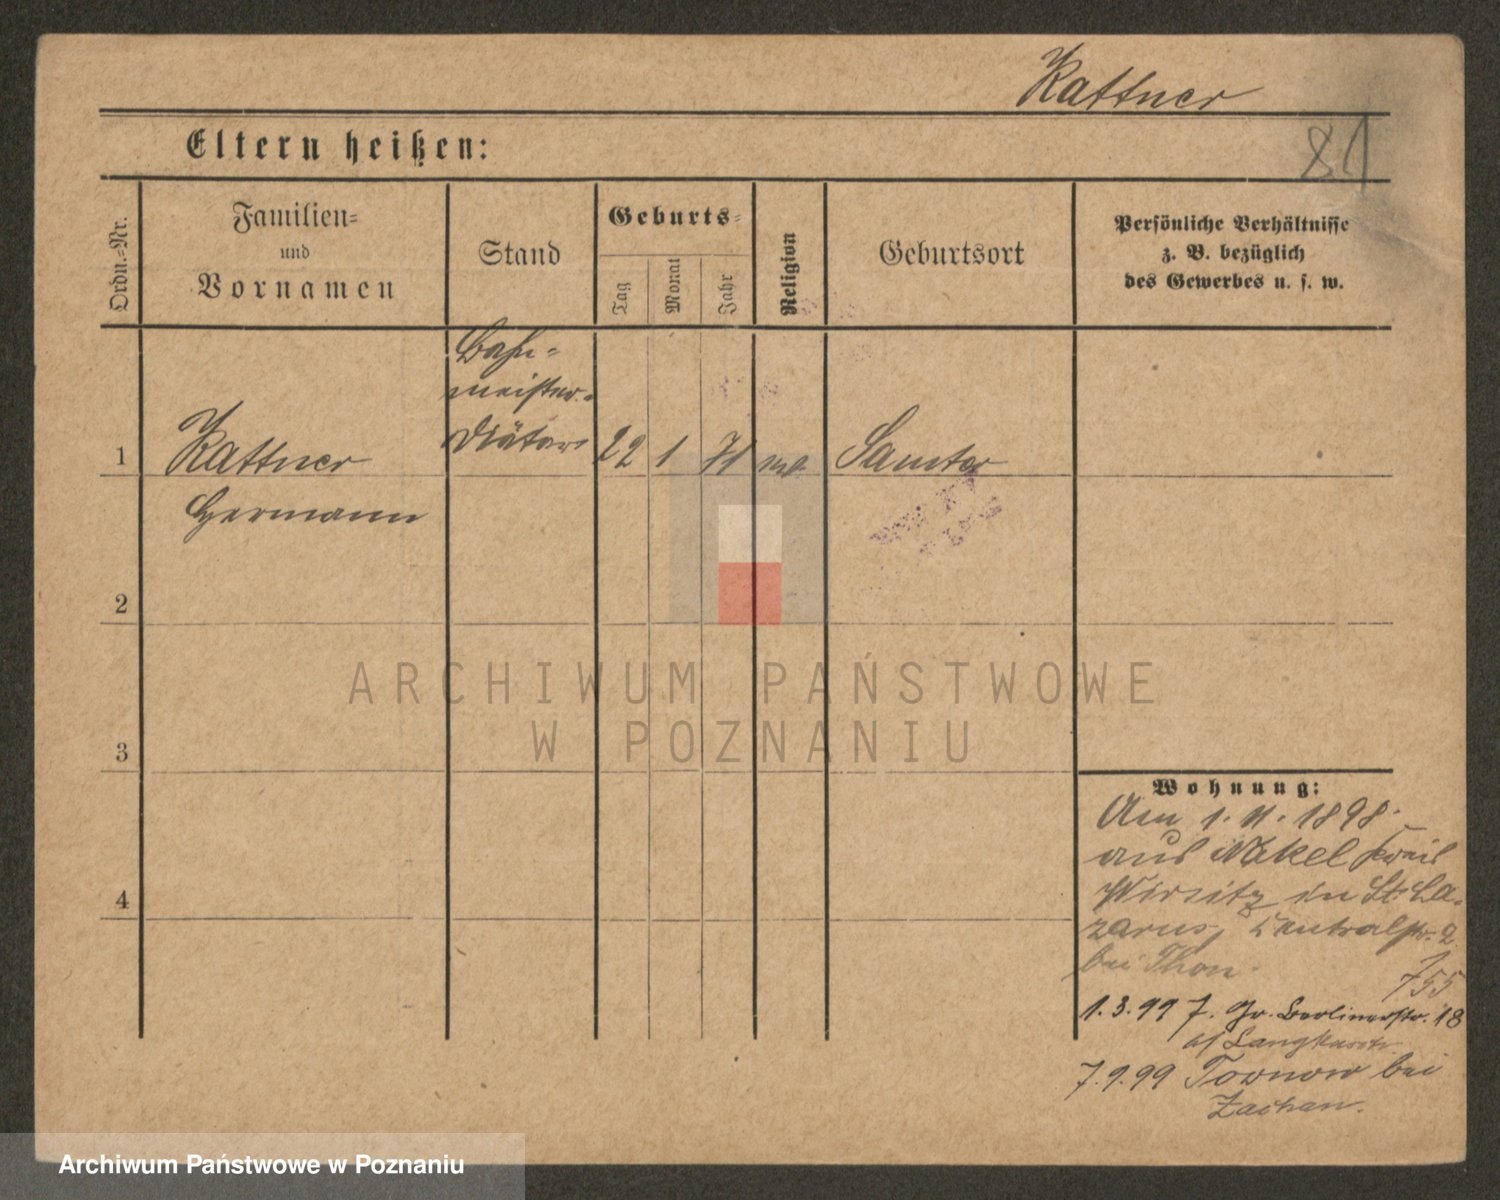 Kattner
81
Eltern heißen:
Ordn.-Nr.
Familien-
und
Vornamen
Stand
Geburts-
Tag
Monat
Jahr
Religion
Geburtsort
Persönliche Verhältnisse
z. B. bezüglich
des Gewerbes u. s. w.
Bahn-
meister-
Diätar
1
Kattner
22 1 71
Samter
Hermann
2
ARCHIWUM PAŃSTWOWE
W POZNANIU
3
Wohnung:
Am 1. 11. 1898.
aus Nakel Kreis
Wirsitz in St. La-
zarus, Centralstr. 2
bei Thon.
755
1.3.99 7. Gr. Berlinerstr. 18
7.9.99 Tornow bei
Zachan.
4
Archiwum Państwowe w Poznaniu